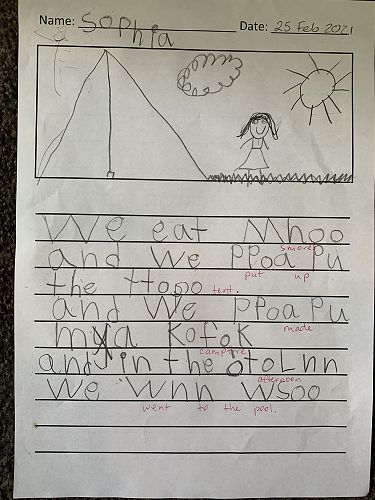 Name: Sophia Date: 25 Feb 2021
We eat Mhoo
smores
and We PPoa Pu
put up
the ttopo tent.
and We PPoa Pu
made
mya Kofok
campfire
and in the otoLnn
afternoon
We Wnn Wsoo
went to the pool.